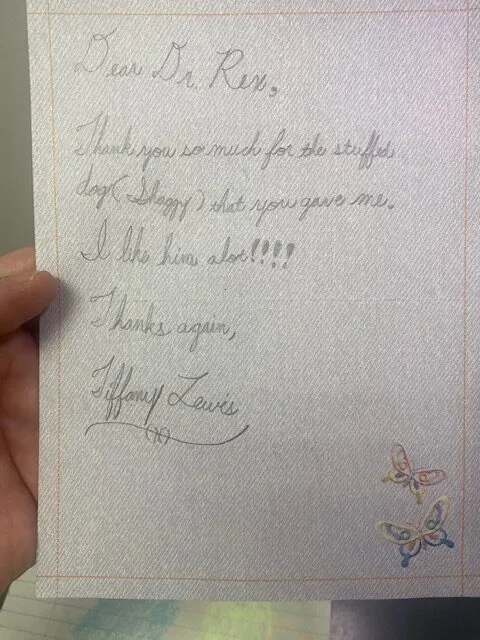 Dear Dr. Rex,
Thank you so much for the stuffed
dog (Shaggy) that you gave me.
I like him alot!!!!
Thanks again,
Tiffany Lewis